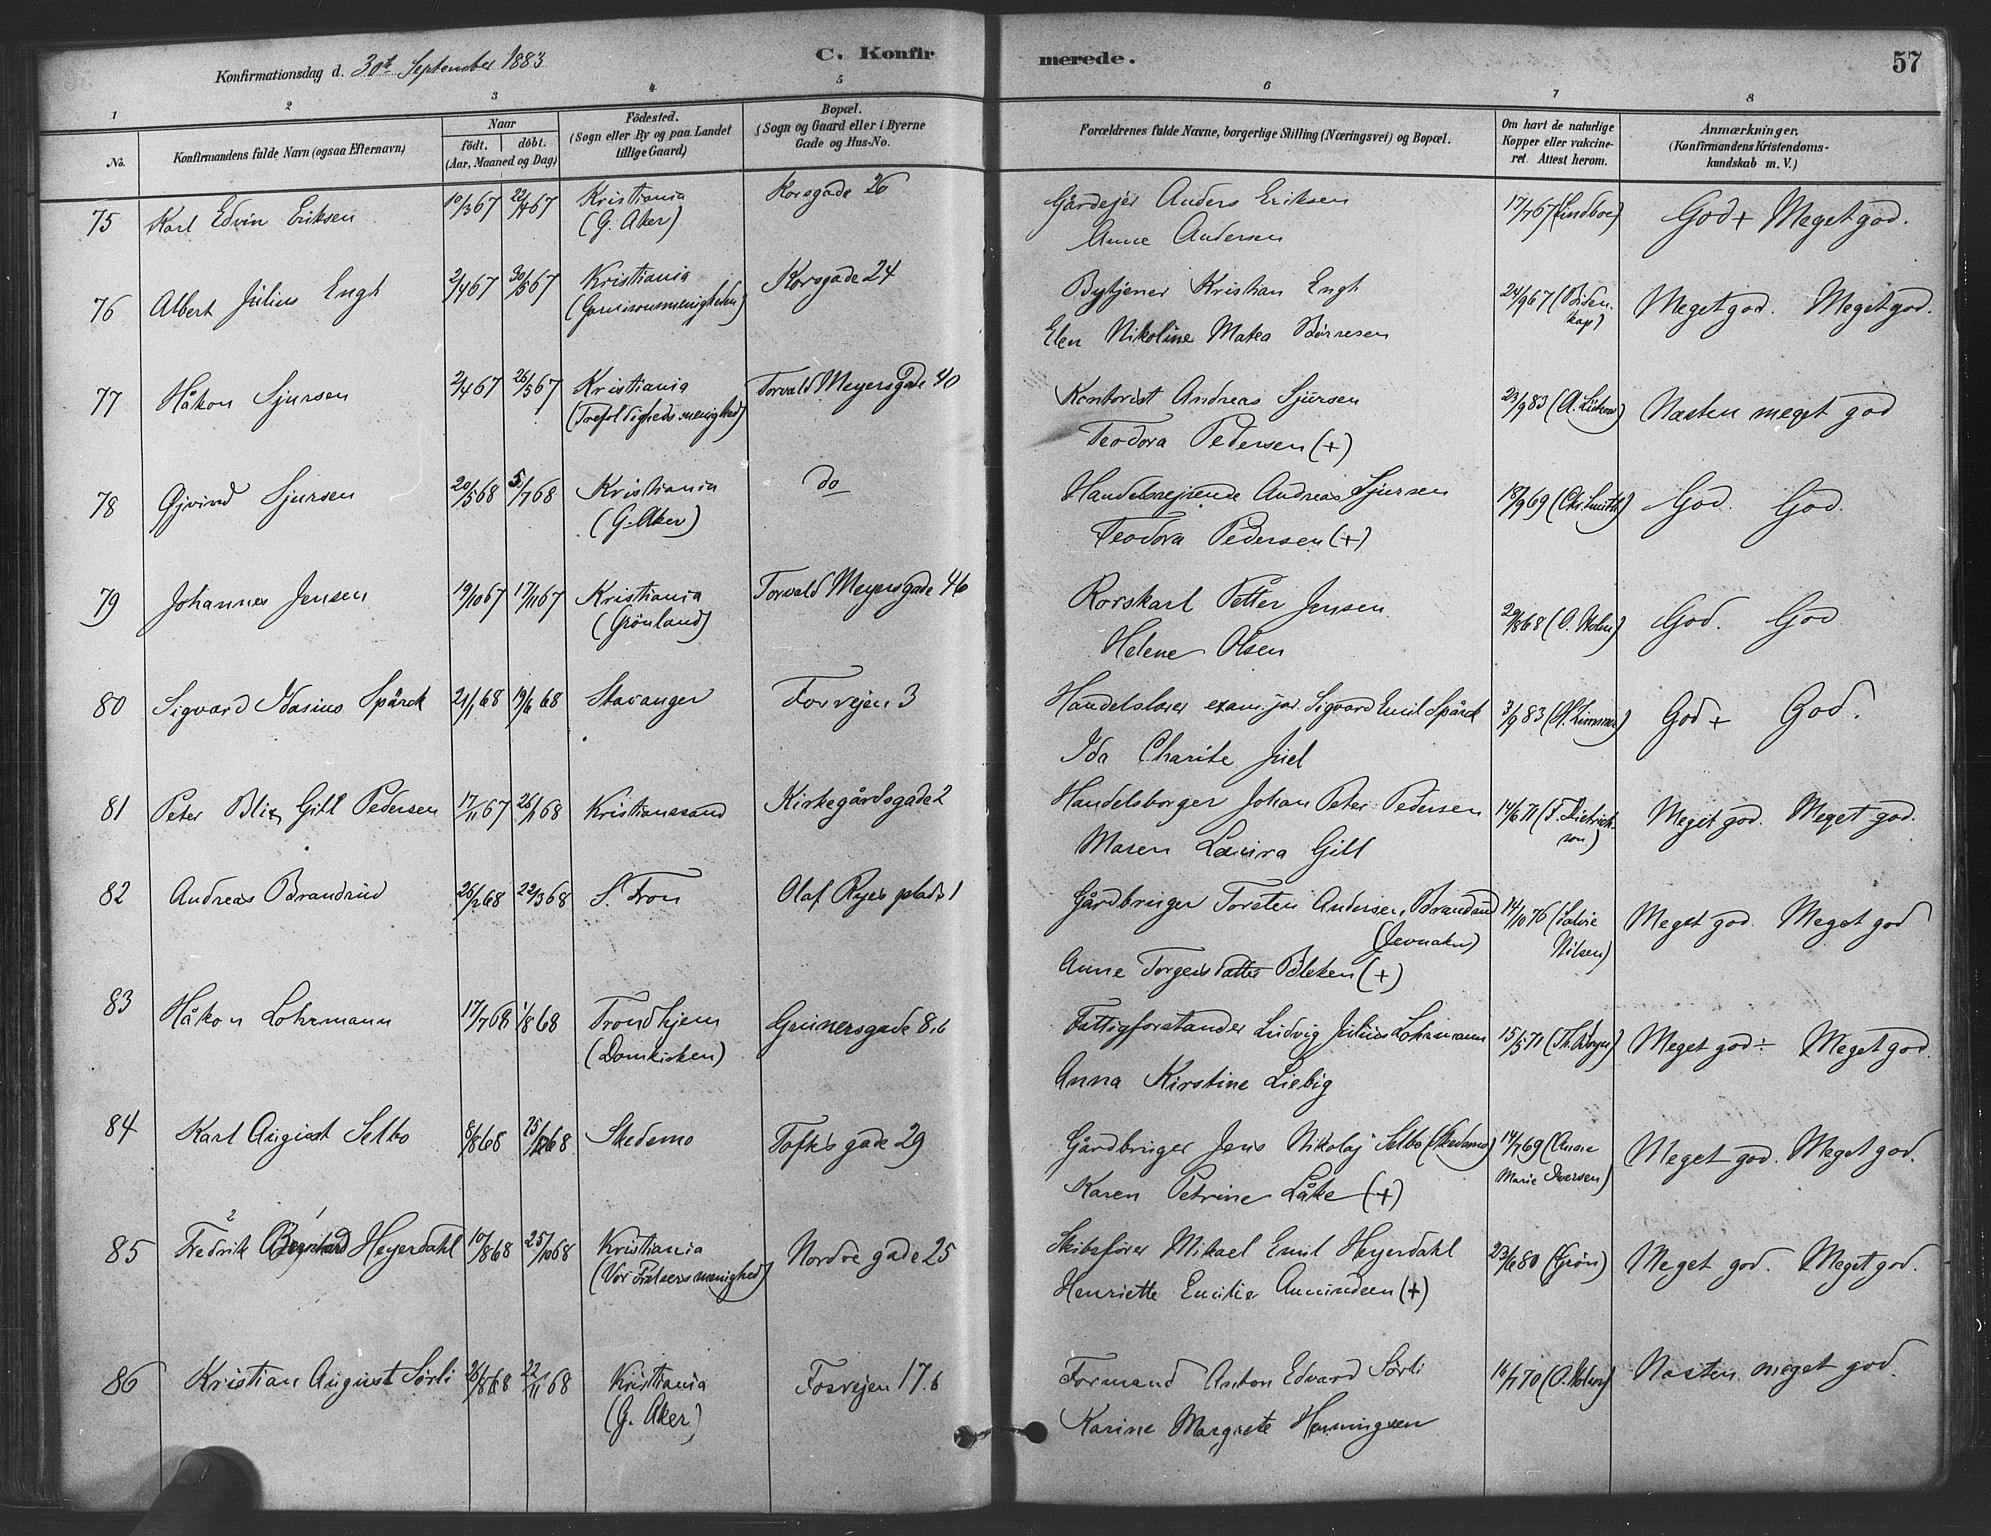 Konfirmationsdag d. 30te September 1883
C. Konfirmerede.
57
1 2 3 4 5 6 7 8
No.
Konfirmandens fulde Navn (ogsaa Efternavn)
Naar
født. døbt.
(Aar, Maaned og Dag)
Fødested.
(Sogn eller By og paa Landet
tillige Gaard)
Bopæl.
(Sogn og Gaard eller i Byerne
Gade og Hus-No.
Forældrenes fulde Navne, borgerlige Stilling (Næringsvei) og Bopæl.
Om havt de naturlige
Kopper eller vakcine-
ret. Attest herom.
Anmærkninger.
(Konfirmandens Kristendoms-
kundskab m. V.)
75 Karl Edvin Eriksen 10/3 67 22/4 67 Kristiania Korsgade 26 Gårdejer Anders Eriksen 17/7 67 (Lindboe) God + Meget god.
(G. Aker) Anne Andersen
76 Albert Julius Engh 2/4 67 30/5 67 Kristiania Korsgade 24 Bytjener Kristian Engh 24/9 67 Meget god. Meget god.
(Garnisonsmenigheden) Elen Nikoline Matea Børresen
77 Håkon Sjursen 2/4 67 26/5 67 Kristiania Torvald Meyersgade 40 Kontorist Andreas Sjursen 23/9 83 Næsten meget god
(Trefoldigheds menighed) Teodora Pedersen (+)
78 Øjvind Sjursen 20/5 68 5/7 68 Kristiania do Handelsrejsende Andreas Sjursen 18/9 69 (Chr. Smith) God. God.
(G. Aker) Teodora Pedersen (+)
79 Johannes Jensen 19/10 67 17/11 67 Kristiania Torvald Meyersgade 46 Rorskarl Petter Jensen 29/8 68 (O. Holm) God. God
(Grønland) Helene Olsen
80 Sigvard Idasius Spårck 21/1 68 19/6 68 Stavanger Fosvejen 3 Handelslærer exam. jur. Sigvard Emil Spårck 3/9 83 God + God.
Ida Charite Juel
81 Peter Blix Gill Pedersen 17/11 67 26/1 68 Kristianssand Kirkegårdsgade 2 Handelsborger Johan Peter Pedersen 14/6 71 (F. Dietrich-
son) Meget god. Meget god.
Maren Laura Gill
82 Andreas Brandrud 26/2 68 22/3 68 S. Fron Olaf Ryes plads 1 Gårdbruger Torsten Andersen Brandrud 14/10 76 Meget god. Meget god
(Jevnaker) Nilsen)
Anne Torgersdatter Bleken (+)
83 Håkon Lohrmann 17/7 68 1/8 68 Trondhjem Grünersgade 8.b Fattigforstander Ludvig Julius Lohrmann 15/5 71 Meget god ÷ Meget god.
(Domkirken) Anna Kirstine Liebig
84 Karl August Selbo 8/8 68 Skedsmo Toftesgade 29 Gårdbruger Jens Nikolaj Selbo (Skedsmo) 14/7 69 (Anne
Marie Iversen) Meget god. Meget god.
Karen Petrine Låke (+)
85 Fredrik Bernhard Heyerdahl 10/8 68 25/10 68 Kristiania Nordre gade 25 Skibsfører Mikael Emil Heyerdahl 23/6 80 (Grøn) Meget god. Meget god.
(Vor Frelsers menighed) Henriette Emilie Amundsen (+)
86 Kristian August Sørli 26/8 68 22/11 68 Kristiania Fosvejen 17.b Formand Anton Edvard Sørli 16/7 70 (O. Holm) Næsten meget god.
(G. Aker) Karine Margrete Henningsen